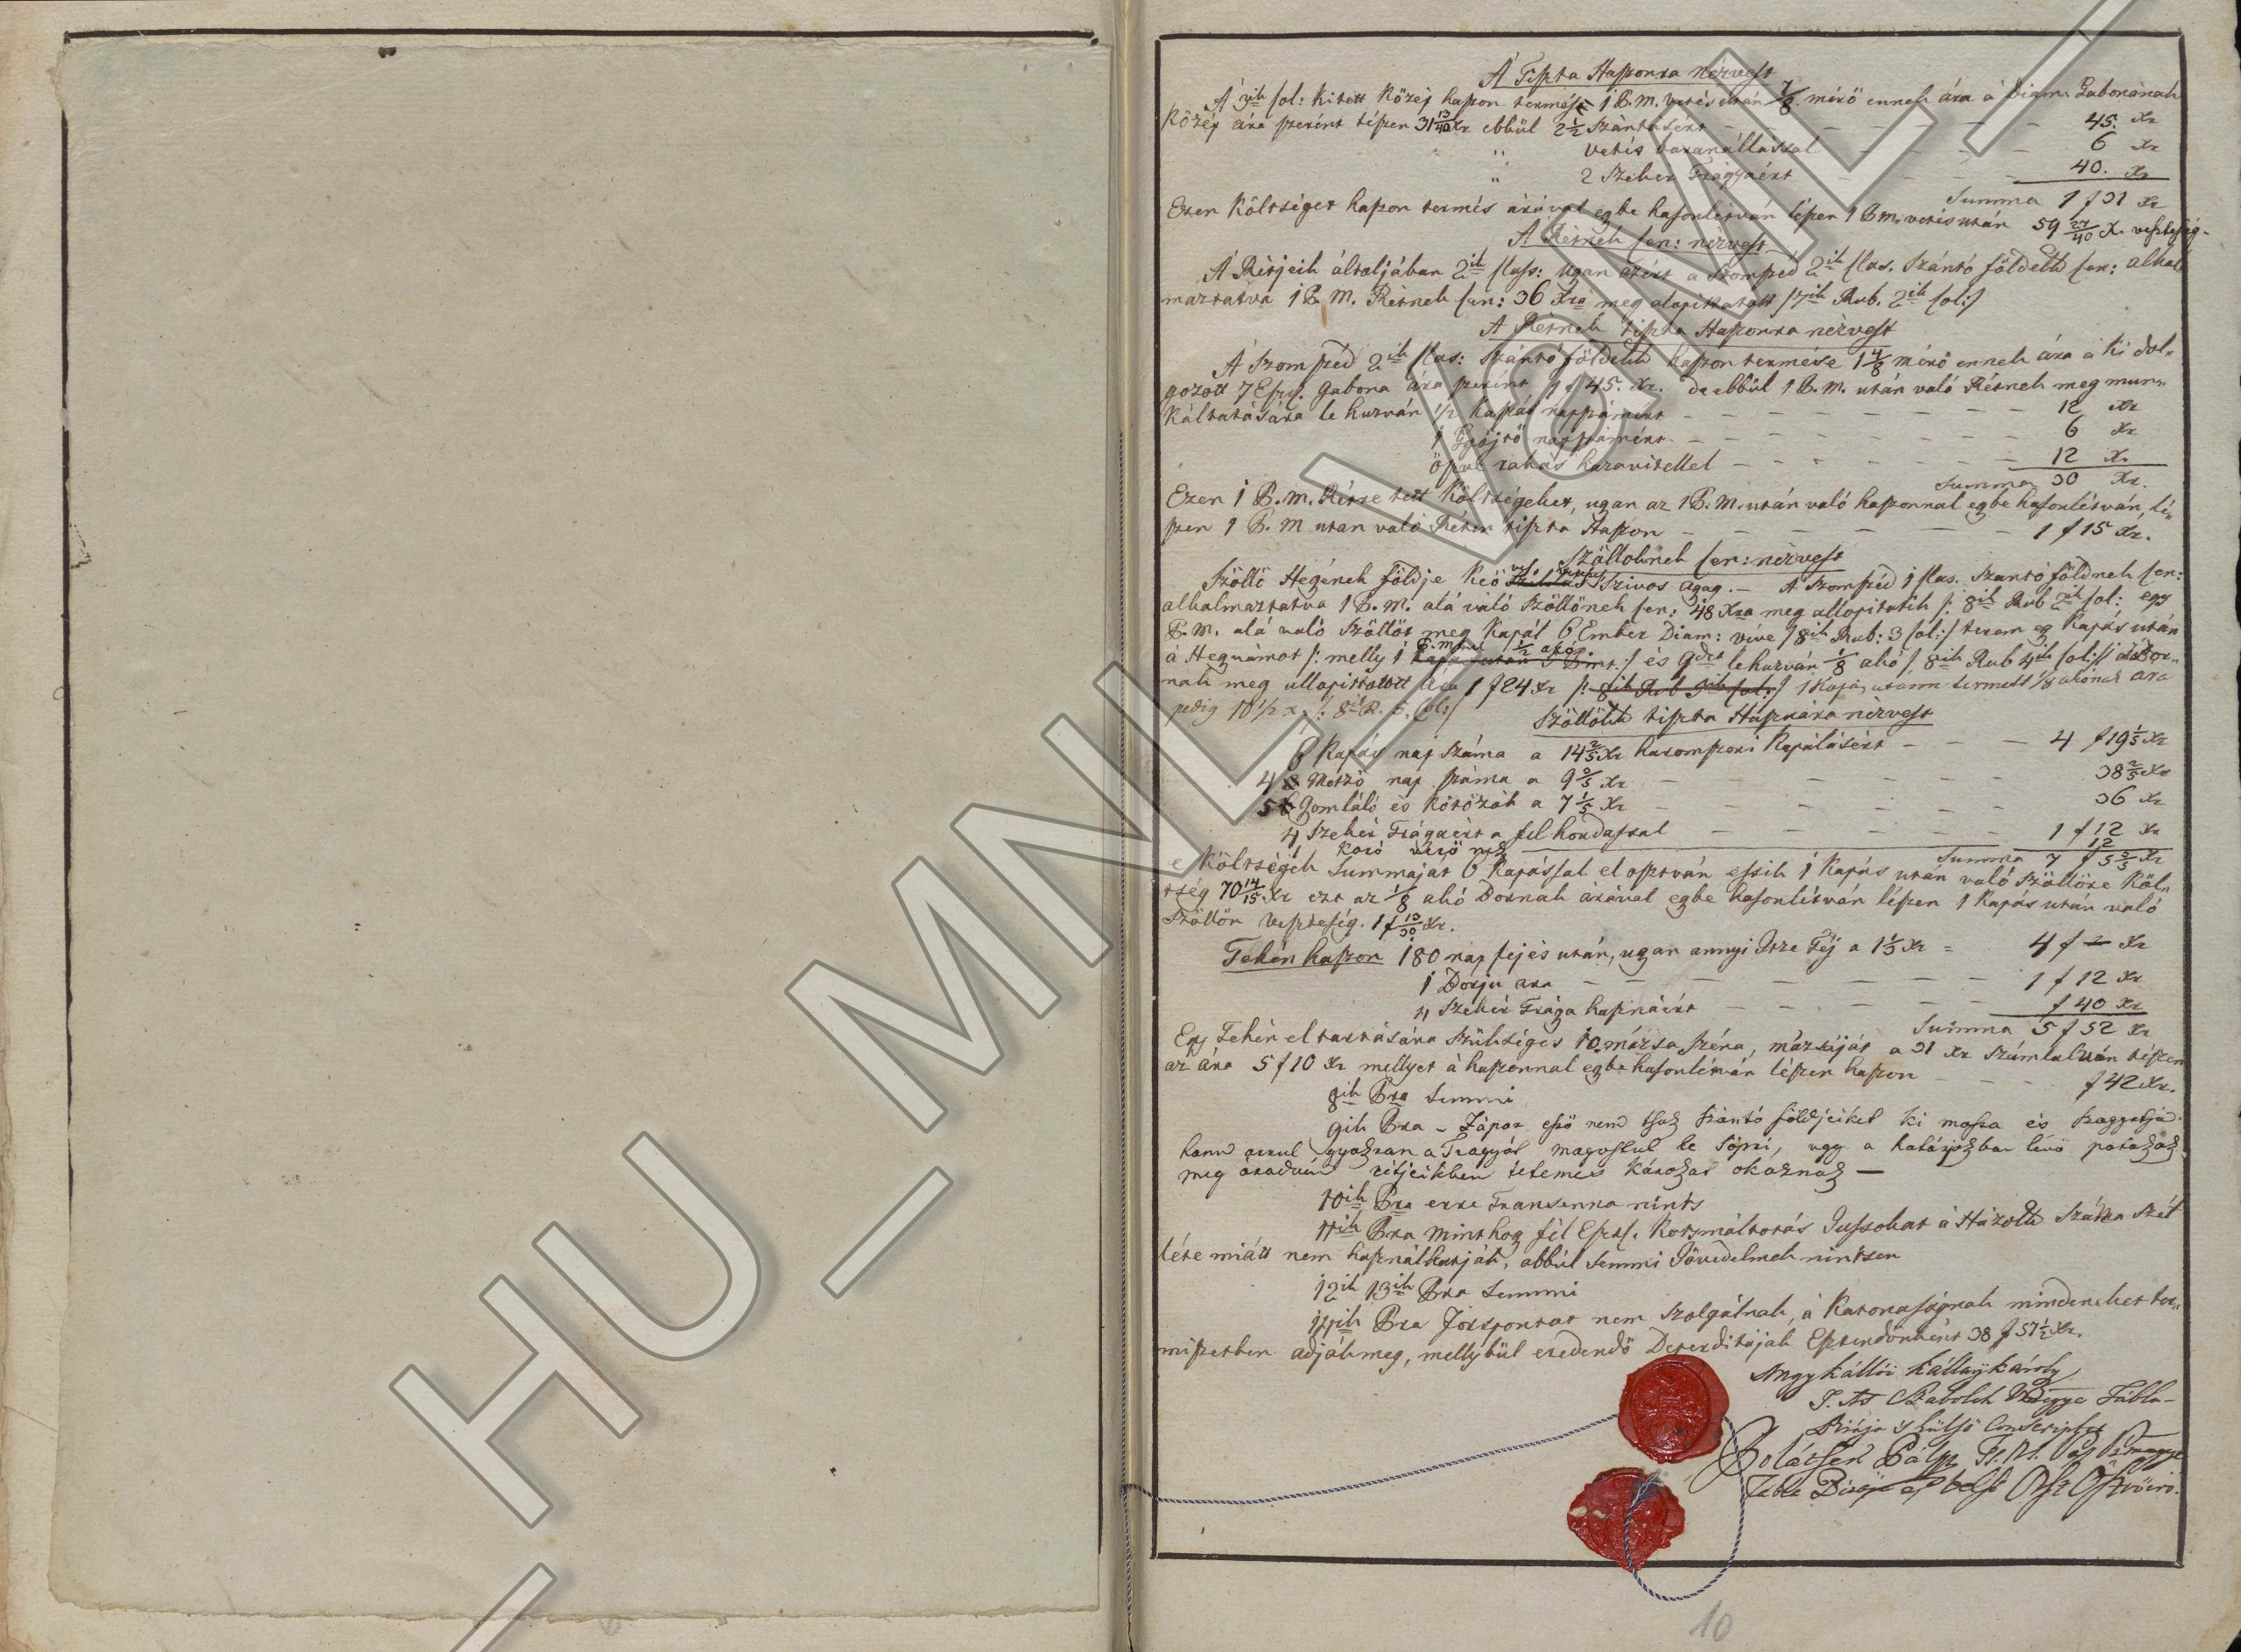 A Tiszta Haszonra nézvest
A 3ik Col: kitett közép haszon termése 1 P.M. vetés után 7/8 mérő ennek ára a Diam. Gabonának
közép ára szerént tészen 31 13/40 Xr ebbül 2 1/2 Szántásért — 45. Xr
" vetés boronállással — 6 Xr
" 2 Szeker Trágyáért — 40. Xr
Summa 1 f 31 Xr
Ezen költséget haszon termés árával egbe hasonlétván lészen 1 P.M. vetés után 59 27/40 X. veszteség-
A Rétnek Cen: nézvest
A Rétjeik általjában 2ik Class: ugan azért a szomszéd 2ik Clas. Szántó földekk Cen: alkal
maztatva 1 P. M. Rétnek Cen: 36 Xra meg alapittatott /7ik Rub. 2ik Col:/
A Rétnek tiszta Haszonra nézvest
A Szomszéd 2ik Clas: Szántó földekk haszon termése 1 4/8 mérő ennek ára a ki dol„
gozott 7 Esz: Gabona ára szerént 1 f 45. Xr. de ebbül 1 P.M. után való Rétnek meg mun„
káltatására le huzván 1/2 kaszás nappámért — 12 Xr
1 Gyöjtő nappámért — 6 Xr
öszve rakás hazavitellel — 12 X.
Summa 30 Xr.
Ezen 1 P.M. Rétre tett költségeket, ugan az 1 P.M. után való haszonnal egbe hasonlétván, lé„
szen 1 P. M után való Réten tiszta Haszon — 1 f 15 Xr.
Szöllöknek Cen: nézvest
Szöllö Hegének földje Szivos agag. — A Szomszéd 1 Clas. Szantó földnek Cen:
alkalmaztatva 1 P.M. alá való Szöllönek Cen: 48 Xra meg allapitatik /: 8ik Rub 2ik Col: egy
P.M. alá való Szöllöt meg kapál 6 Ember Diam: véve /8ik Rub: 3 Col:/ terem eg kapás után
á Hegvámot /: melly 1 P.M. 1/2 akó :/ és 9det lehuzván 1/8 akó /: 8ik Rub 4ik Col:/ a Bor„
nak meg allapittatott ára 1 f 24 Xr /: 8ik Rub 5ik Col:/ 1 kapás utánn termett 1/8 akónak ára
pedig 10 1/2 x. /: 8ik R. 5. Col:/
Szöllökk tiszta Hasznára nézvest
6 Kapás nap száma a 14 2/5 Xr háromszori kapálásért — 4 f 19 1/5 Xr
4 Metző nap száma a 9 3/5 Xr — 38 2/5 Xr
5 Gomláló és kötözök a 7 1/5 Xr — 36 Xr
4 Szekér Trágáért a fel hordással — 1 f 12 Xr
1 Karó verő — 12
Summa 7 f 5 3/5 Xr
e költségek Summáját 6 kapással el osztván essik 1 kapás után való Szöllöre köl„
tség 70 14/15 Xr ezt az 1/8 akó Bornak árával egbe hasonlétván lészen 1 kapás után való
Szöllön veszteség. 1 f 13/30 Xr.
Tehén haszon 180 nap fejés után, ugan annyi Itze Téj a 1 1/3 Xr = 4 f — Xr
1 Borju ára — 1 f 12 Xr
4 Szekér Trága hasznáért — f 40 Xr
Summa 5 f 52 Xr
Egy Tehén el tartására szükséges 10 mázsa széna, mázsáját a 31 Xr számlálván tészen
az ára 5 f 10 Xr mellyet á haszonnal egbe hasonlétván lészen haszon — f 42 Xr.
8ik Pra Semmi
9ik Pra – Zápor eső nem tsak szántó földjeiket ki mossa és szaggatja
hanem arrul gyakran a Tragyát magostul le söpri, ugy a határjokban lévő patakok
meg áradván rétjeikben tetemes károkat okoznak —
10ik Pra erre Transenna nints
11ik Pra Mint hog fél Eszt. Kortsmáltatás Jussokat á Házokk Száma
léte miátt nem használhatják, abbúl Semmi Jövedelmek nintsen
12ik 13ik Pra Semmi
14ik Pra Jorspontot nem szolgálnak, á Katonaságnak mindeneket ter„
miszetben adják meg, mellybül eredendő Deperditájok Esztendőnként 38 f 57 1/2 Xr.
Nagy Kállói Kállay Károly
T. Ns Szabolch Vármegye Tábla-
Birája 's külső Conscriptor
Bolátsek Pálp T. N. Vas Vármegye
Tábla Birája és belső Öszve Iró.
10
HU_MNL_VSML_IV